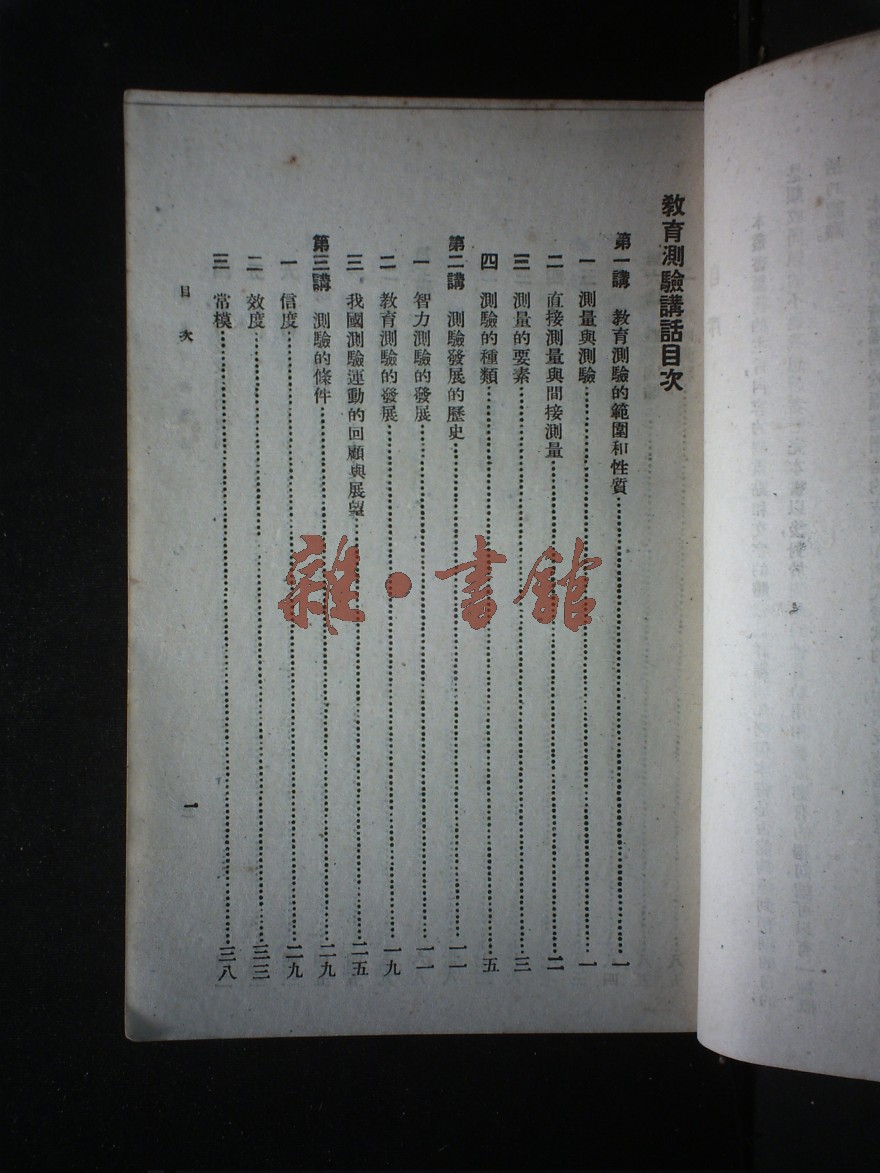 教育測驗講話目次
第一講　教育測驗的範圍和性質……一
一　測量與測驗……一
二　直接測量與間接測量……二
三　測量的要素……三
四　測驗的種類……五
第二講　測驗發展的歷史……一一
一　智力測驗的發展……一一
二　教育測驗的發展……一九
三　我國測驗運動的回顧與展望……二五
第三講　測驗的條件……二九
一　信度……二九
二　效度……三三
三　常模……三八
目次
一
雜·書館